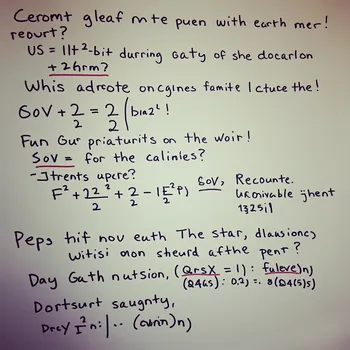 Ceromt gleaf mte puen with earth mer!
reourt?
US = 11t²-bit durring Gaty of she docarlon
+ 2Grm?
Whis adroote oncgines famite I ctuce the!
GoV + 2/2 = 2/2 | b1a2² !
Fun Gur priaturits on the woir!
SoV = for the calinles?
-Itrents upcre?
F² + 22²/2 + 2/2 - 1E²P)/2 GoV, Recounte.
jhent
1325i1
Peps hif nov euth The star, dlansions
witisi mon sheurd afthe pent?
Day Gath nutsion, (QrsX = 11: fuleve)n)
(Q4GS): 0,2) =. 8(Q4(5)5)
Dortsurt saugnty,